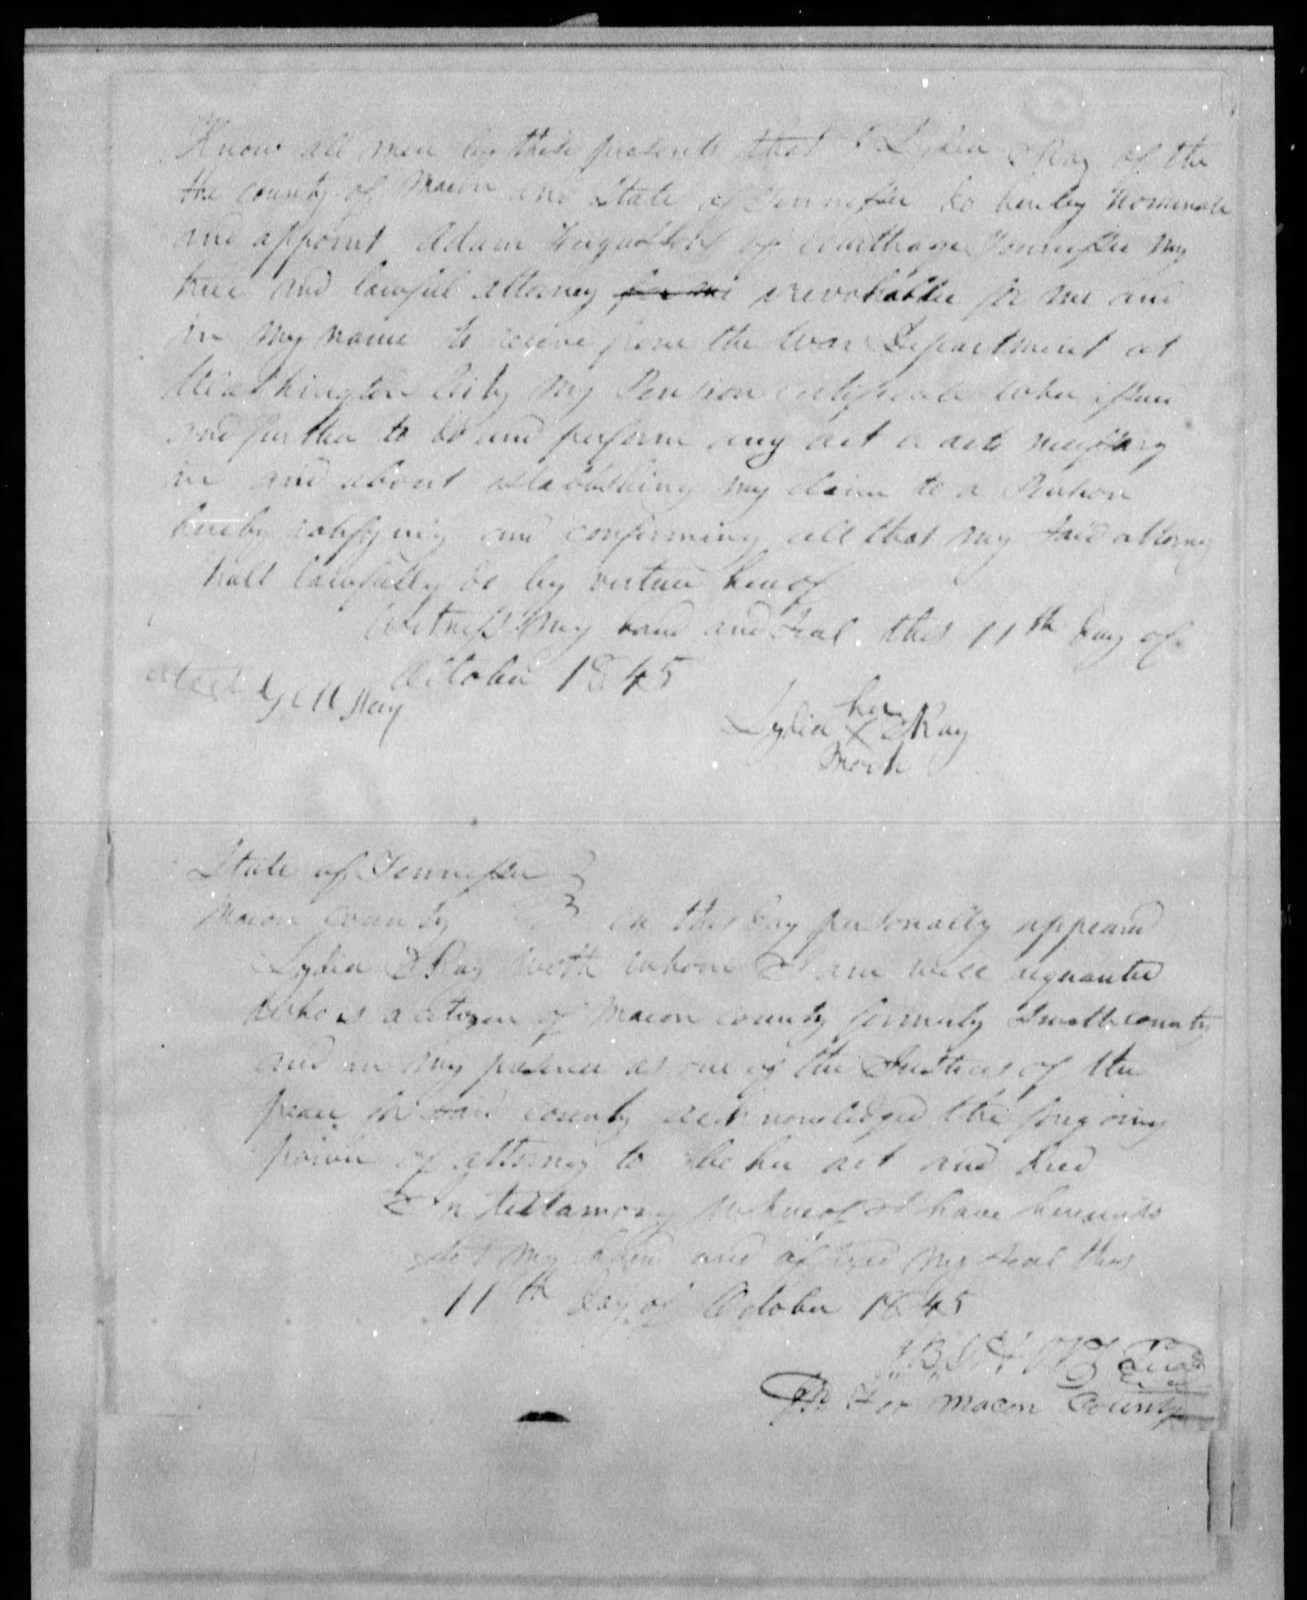 Know all men by these presents that I Lydia Ray of the
the county of Macon and State of Tennessee do hereby nominate
and appoint Adam Fergusson of Carthage Tennessee my
true and lawful attorney for me irevokable for me and
in my name to receive from the War Department at
Washington City my Pension certificate when issued
and further to do and perform any act or acts necessary
in and about establishing my claim to a Pension
hereby ratifying and confirming all that my said attorney
shall lawfully do by virtue hereof
Witness my hand and seal this 11th day of
October 1845
attest
her
Lydia X Ray
mark
State of Tennessee
Macon County On this day personally appeared
Lydia Ray with whom I am well aquanted
who is a citizen of Macon county formerly Smith county
and in my presence as one of the Justices of the
peace for said county acknowledged the foregoing
power of attorney to be her act and deed
In testamony whereof I have hereunto
set my hand and affixed my seal this
11th day of October 1845
JP For Macon County